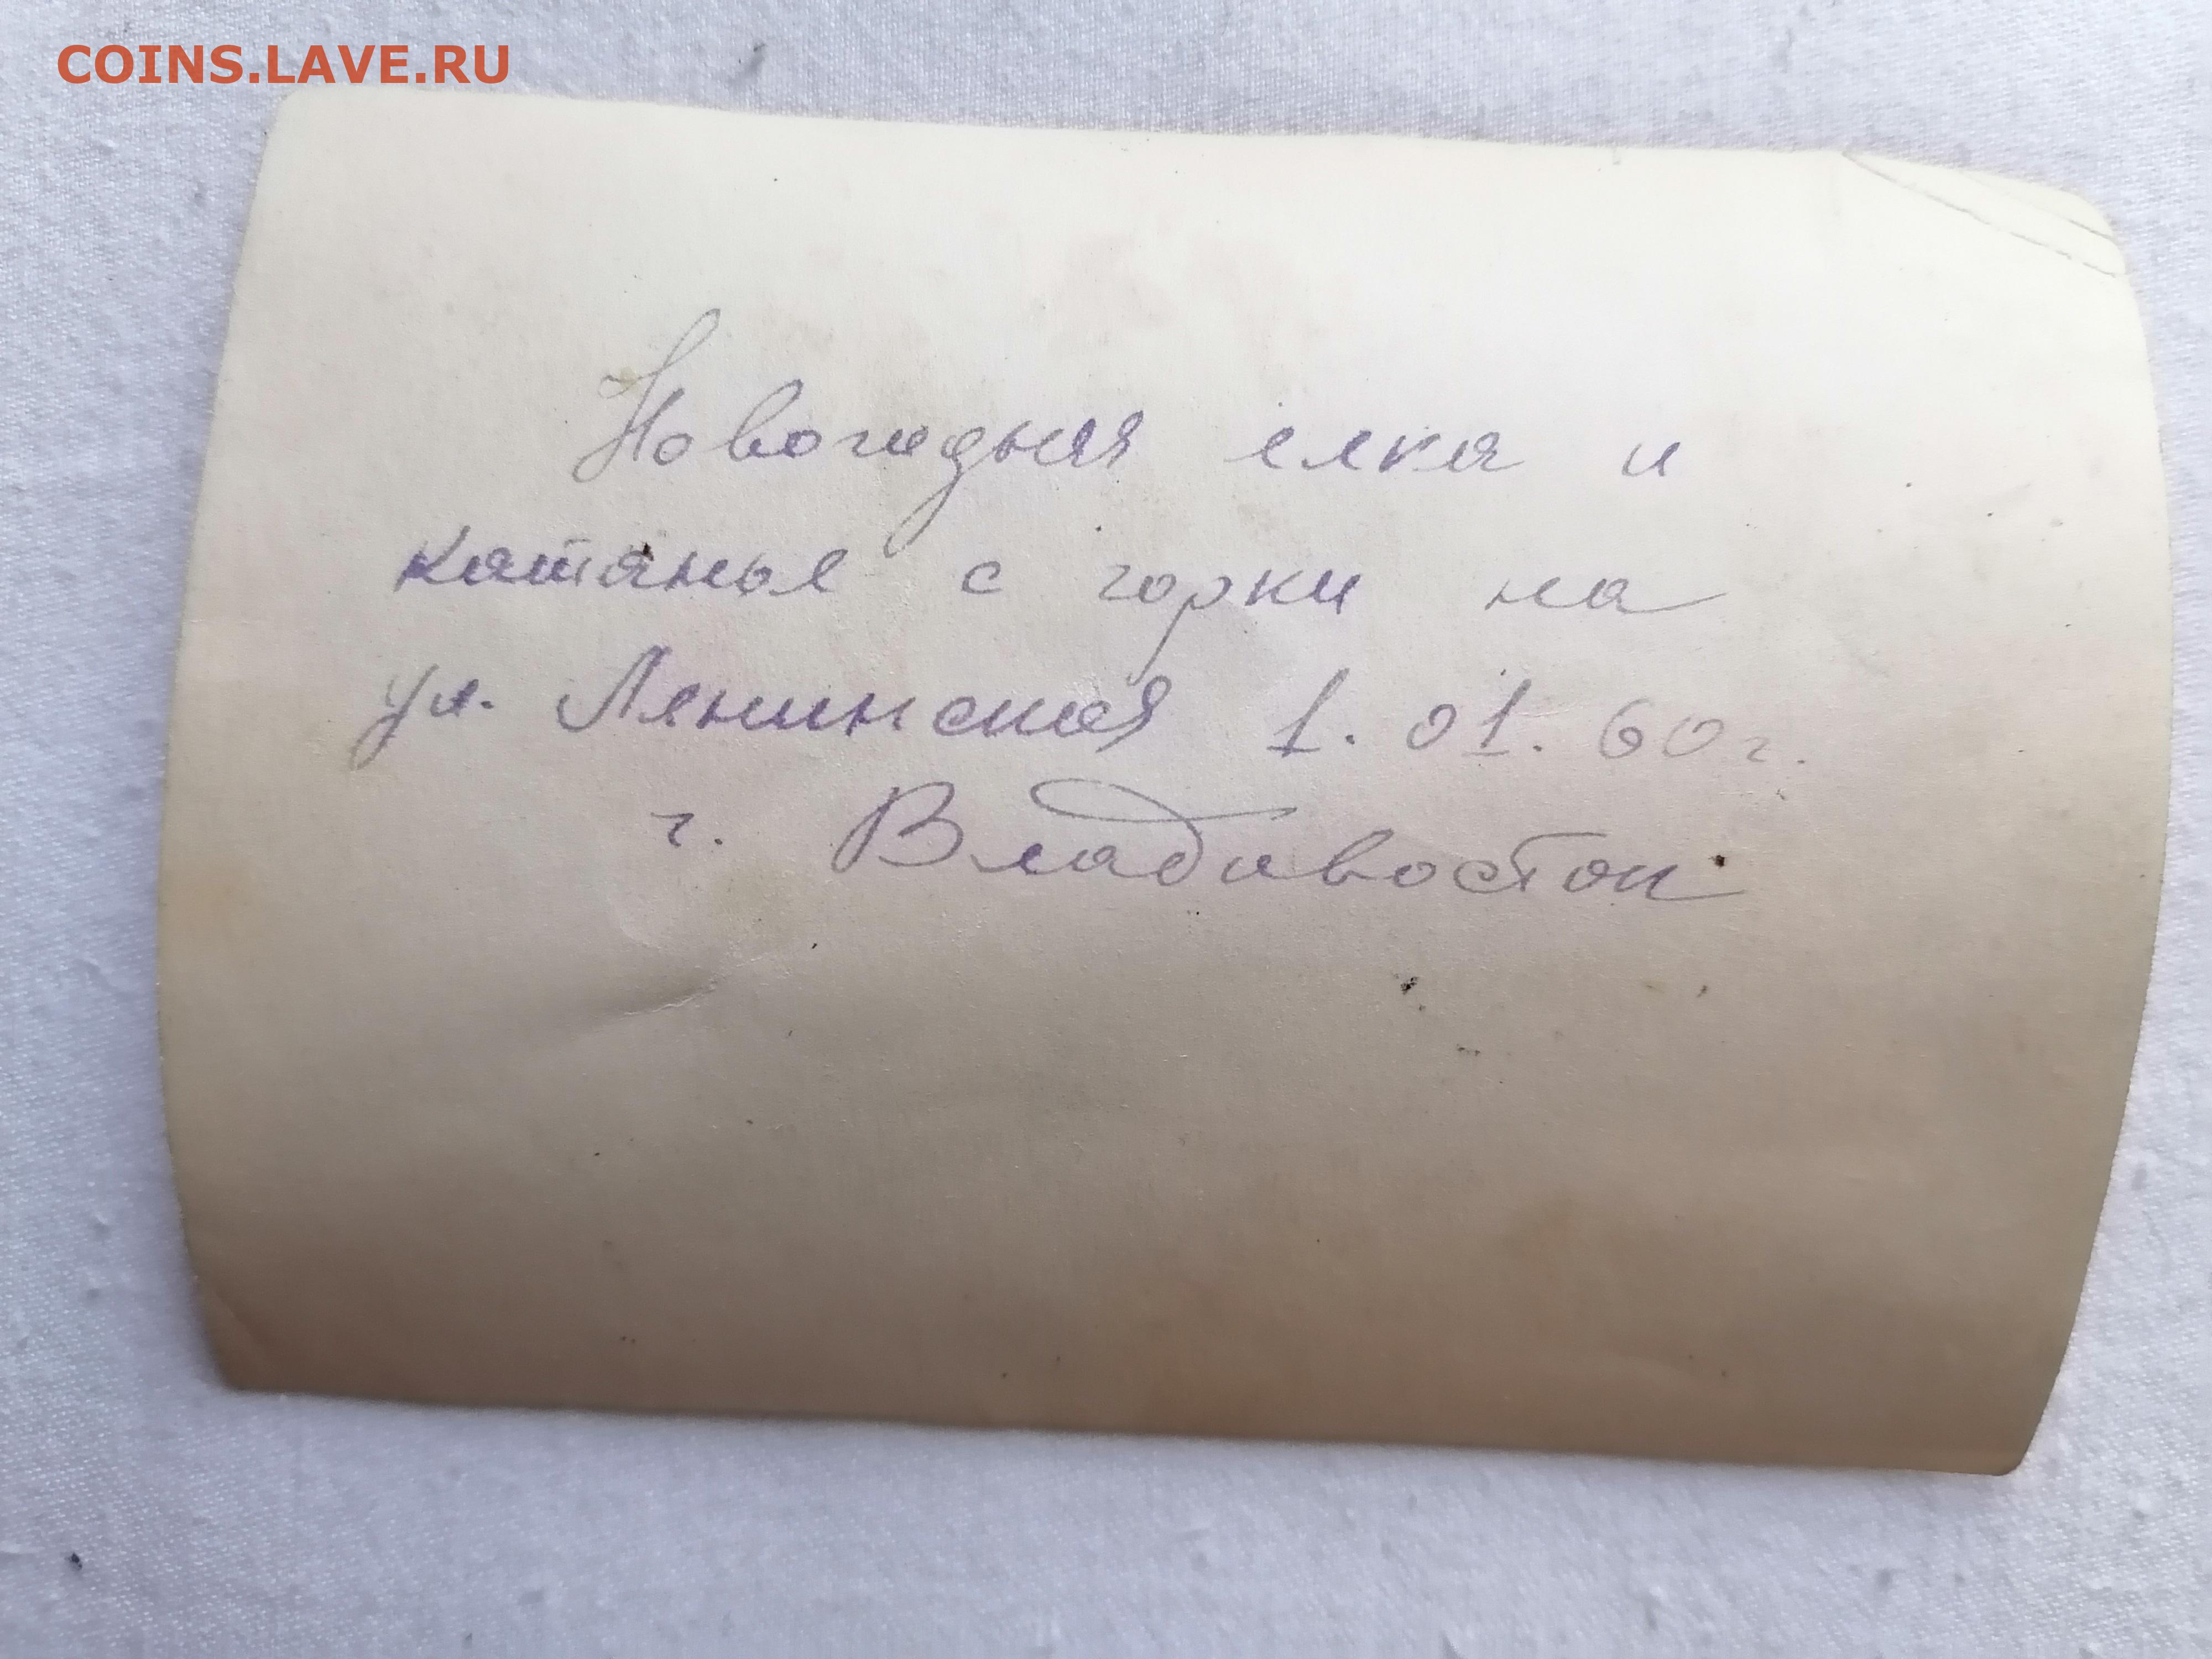 COINS.LAVE.RU
Новогодняя елка и
катанье с горки на
ул. Ленинская 1.01.60г.
г. Владивосток